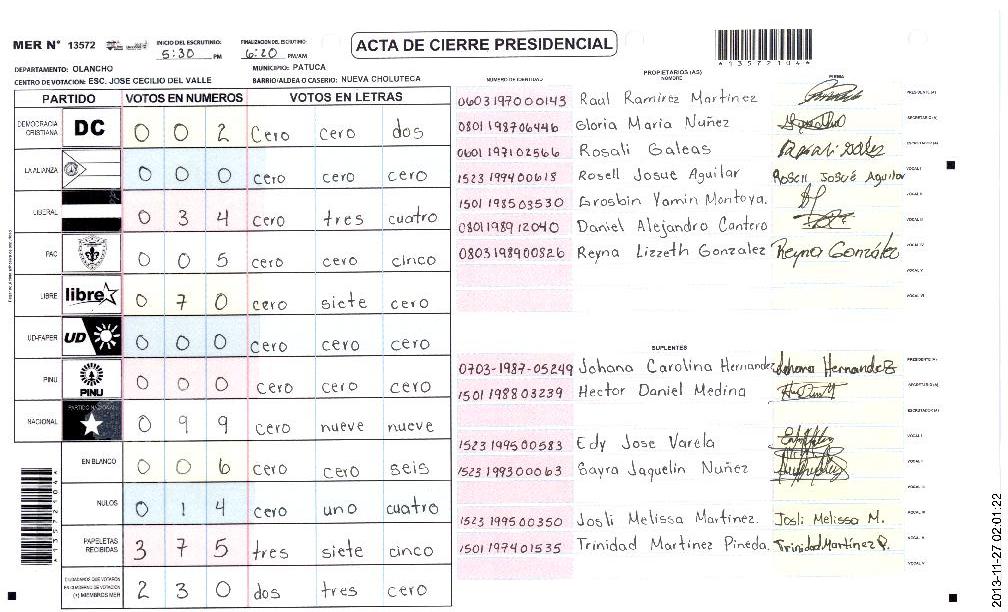 MER N° 13572
INICIO DEL ESCRUTINIO: 5:30 PM
FINALIZACIÓN DEL ESCRUTINIO: 6:20 PM/AM.
ACTA DE CIERRE PRESIDENCIAL
*135721044*
DEPARTAMENTO: OLANCHO
MUNICIPIO: PATUCA
CENTRO DE VOTACION: ESC. JOSE CECILIO DEL VALLE
BARRIO/ALDEA O CASERIO: NUEVA CHOLUTECA
PARTIDO VOTOS EN NUMEROS VOTOS EN LETRAS
DEMOCRACIA CRISTIANA DC 0 0 2 cero cero dos
LA ALIANZA 0 0 0 cero cero cero
LIBERAL 0 3 4 cero tres cuatro
PAC 0 0 5 cero cero cinco
LIBRE libre 0 7 0 cero siete cero
UD-FAPER UD 0 0 0 cero cero cero
PINU PINU 0 0 0 cero cero cero
NACIONAL PARTIDO NACIONAL 0 9 9 cero nueve nueve
EN BLANCO 0 0 6 cero cero seis
NULOS 0 1 4 cero uno cuatro
PAPELETAS RECIBIDAS 3 7 5 tres siete cinco
CIUDADANOS QUE VOTARON EN CUADERNO DE VOTACION (+) MIEMBROS MER 2 3 0 dos tres cero
NUMERO DE IDENTIDAD PROPIETARIOS (AS) NOMBRE FIRMA
0603197000143 Raul Ramirez Martinez PRESIDENTE (A)
0801198706446 Gloria Maria Nuñez SECRETARIO (A)
0601197102566 Rosali Galeas ESCRUTADOR (A)
1523199400618 Rosell Josue Aguilar Rosell Josué Aguilar VOCAL I
1501198503530 Grosbin Yamin Montoya. VOCAL II
0801198912040 Daniel Alejandro Cantero VOCAL III
0803198900826 Reyna Lizzeth Gonzalez Reyna González VOCAL IV
VOCAL V
VOCAL VI
SUPLENTES
0703-1987-05249 Johana Carolina Hernandez Johana Hernandez PRESIDENTE (A)
1501198803239 Hector Daniel Medina SECRETARIO (A)
ESCRUTADOR (A)
1523199500583 Edy Jose Varela VOCAL I
1523199300063 Sayra Jaquelin Nuñez VOCAL II
VOCAL III
1523199500350 Josli Melissa Martinez. Josli Melissa M. VOCAL IV
1501197401535 Trinidad Martinez Pineda. Trinidad Martínez P. VOCAL V
VOCAL VI
2013-11-27 02:01:22